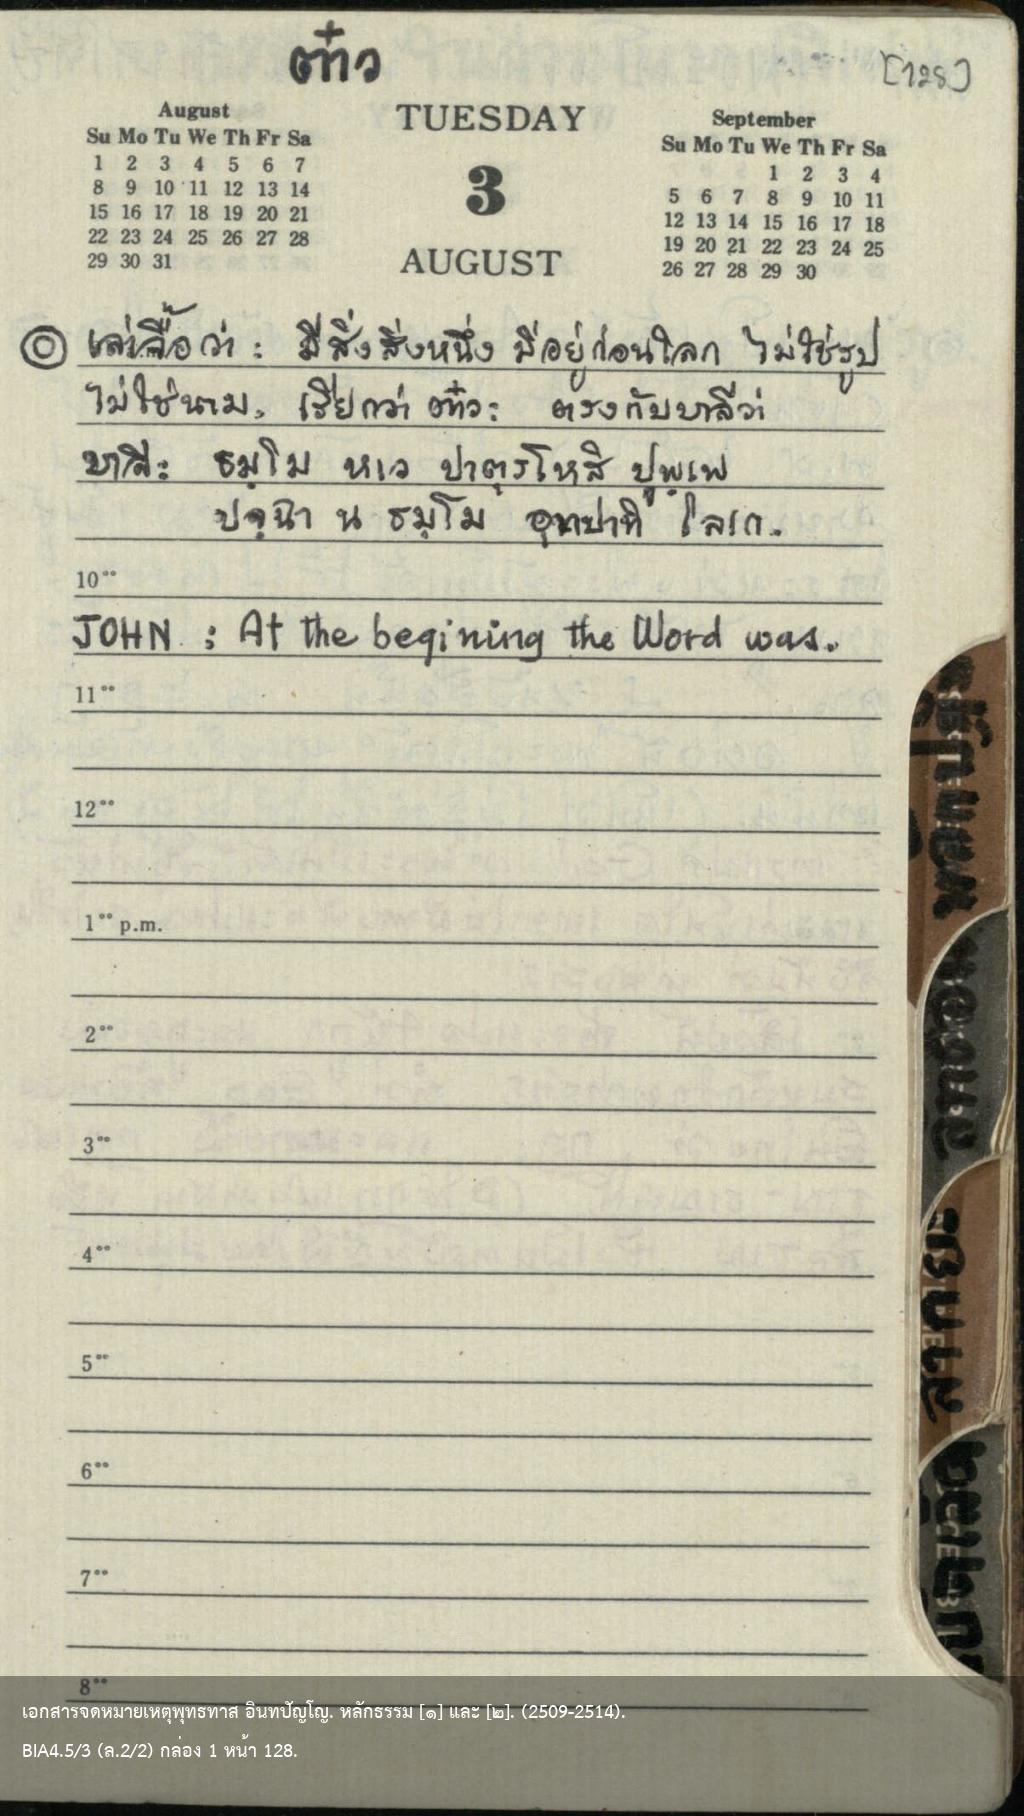 เต๋า
[128]
August
Su Mo Tu We Th Fr Sa
1 2 3 4 5 6 7
8 9 10 11 12 13 14
15 16 17 18 19 20 21
22 23 24 25 26 27 28
29 30 31
TUESDAY
3
AUGUST
September
Su Mo Tu We Th Fr Sa
1 2 3 4
5 6 7 8 9 10 11
12 13 14 15 16 17 18
19 20 21 22 23 24 25
26 27 28 29 30
เล่าจื๊อว่า : มีสิ่งสิ่งหนึ่ง มีอยู่ก่อนโลก ไม่ใช่รูป
ไม่ใช่นาม, เรียกว่า เต๋า: ตรงกับบาลีว่า
บาลี: ธมฺโม หเว ปาตุรโหสิ ปุพฺเพ
ปจฺฉา น ธมฺโม อุทปาทิ โลเก.
10°°
JOHN : At the begining the Word was.
11°°
12°°
1°° p.m.
2°°
3°°
4°°
5°°
6°°
7°°
8°°
สากย
เอกสารจดหมายเหตุพุทธทาส อินทปัญโญ. หลักธรรม [๑] และ [๒]. (2509-2514).
BIA4.5/3 (ล.2/2) กล่อง 1 หน้า 128.